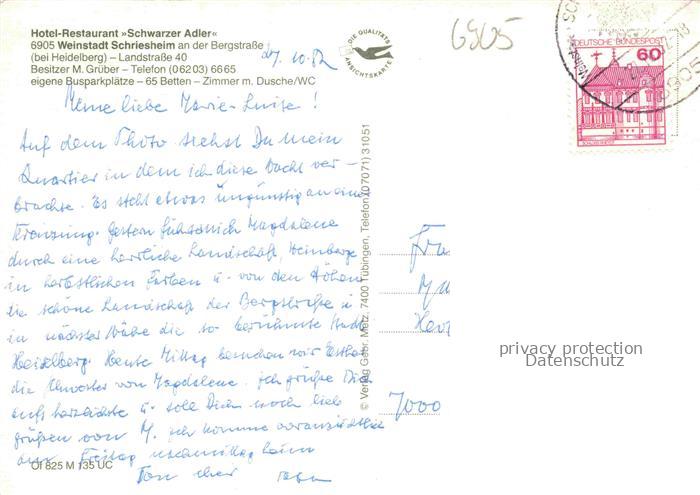 Hotel-Restaurant »Schwarzer Adler«
6905 Weinstadt Schriesheim an der Bergstraße
(bei Heidelberg) – Landstraße 40
Besitzer M. Grüber – Telefon (06203) 6665
eigene Busparkplätze – 65 Betten – Zimmer m. Dusche/WC
27.10.82
DIE QUALITÄTS
ANSICHTSKARTE
6905
DEUTSCHE BUNDESPOST
60
Meine liebe Marie-Luise!
Auf dem Photo siehst Du mein
Quartier in dem ich diese Nacht ver-
brachte. Es steht etwas ungünstig an einer
Kreuzung. Gestern führte mich Magdalene
durch eine herrliche Landschaft, Weinberge
in herbstlichen Farben u. von den Höhen
die schöne Landschaft der Bergstraße u.
in nächster Nähe die so berühmte Stadt
Heidelberg. Heute Mittag besuchen wir Esther
die Schwester von Magdalene. Ich grüße Dich
aufs herzlichste u. soll Dich noch lieb
grüßen von M. Ich komme voraussichtlich
Freitag nachmittag heim
© Verlag Gebr. Metz, 7400 Tübingen, Telefon (07071) 31051
7000
privacy protection
Datenschutz
Öl 825 M 135 UC